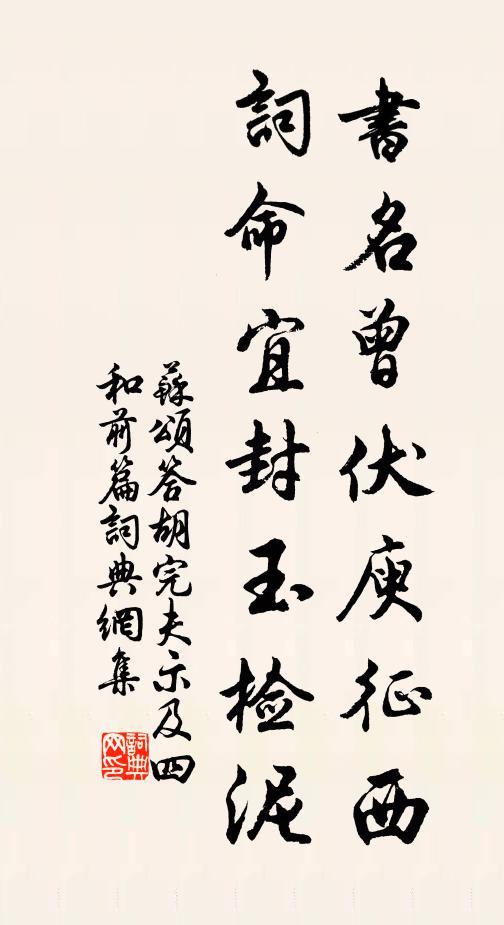 書名曾伏庾征西
詞命宜封玉檢泥
蘇頌答胡完夫示及四
和前篇詞典網集
詞典
网印